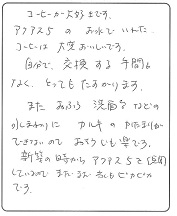 コーヒーが大好きです。
アクアス5の お水で いれた
コーヒーは 大変おいしいです。
自分で、交換する 手間も
なく、とっても たすかります。
また おふろ 洗面台 などの
水まわりに カルキの かたまりが
できないので おそうじも 楽です。
新築の時から アクアス5を
しているので まだ まだ 水も ピカピカ
です。